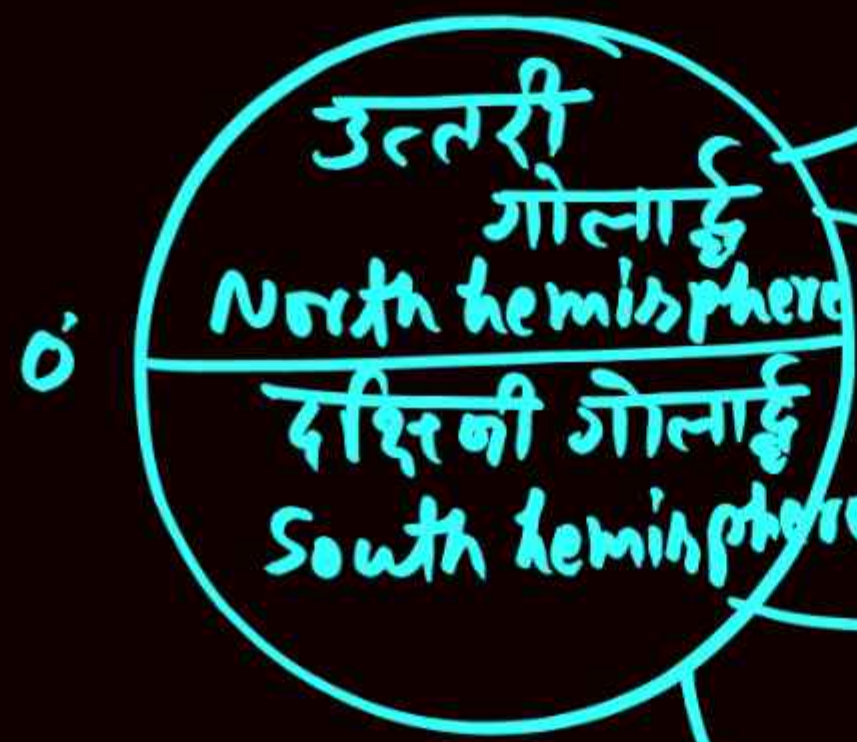 उत्तरी
गोलार्द्ध
North hemisphere
0°
दक्षिनी गोलार्द्ध
South hemisphere